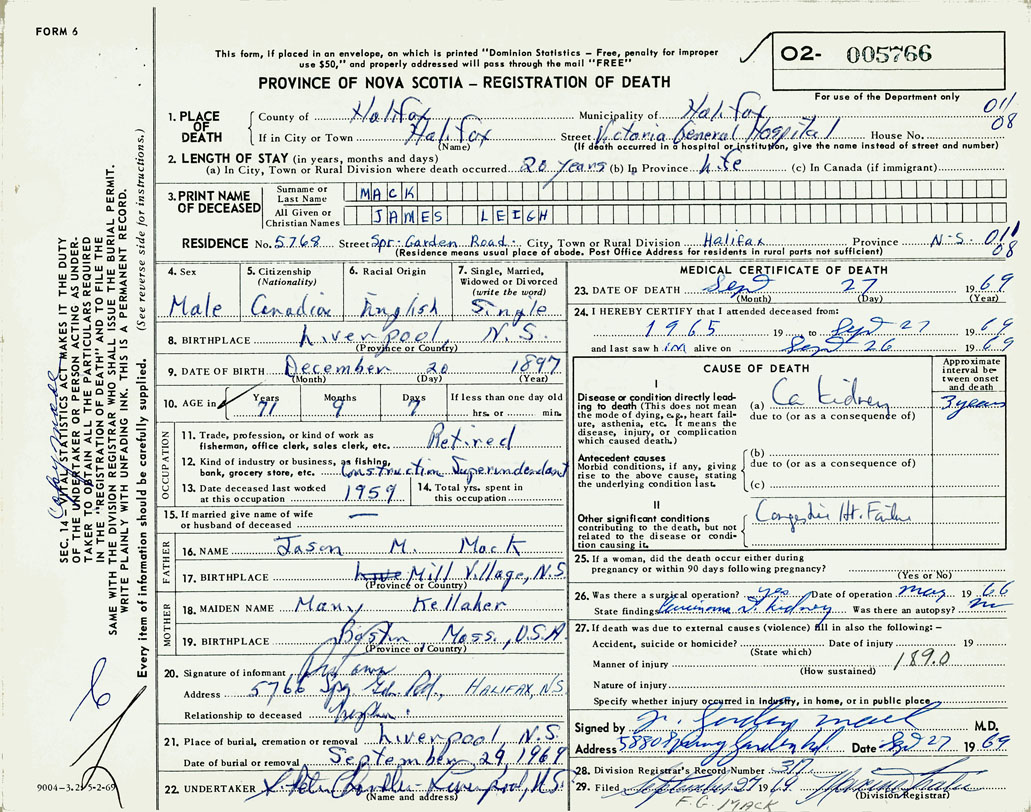 FORM 6
This form, if placed in an envelope, on which is printed "Dominion Statistics – Free, penalty for improper
use $50," and properly addressed will pass through the mail "FREE"
O2- 005766
PROVINCE OF NOVA SCOTIA – REGISTRATION OF DEATH
For use of the Department only
1. PLACE OF DEATH
County of Halifax Municipality of Halifax 011
If in City or Town Halifax Street Victoria General Hospital House No. 08
(Name) (If death occurred in a hospital or institution, give the name instead of street and number)
2. LENGTH OF STAY (in years, months and days)
(a) In City, Town or Rural Division where death occurred 20 years (b) In Province Life (c) In Canada (if immigrant)
3. PRINT NAME OF DECEASED
Surname or Last Name MACK
All Given or Christian Names JAMES LEIGH
RESIDENCE No. 5768 Street Spr. Garden Road. City, Town or Rural Division Halifax Province N.S. 011
(Residence means usual place of abode. Post Office Address for residents in rural parts not sufficient) 08
4. Sex Male
5. Citizenship (Nationality) Canadian
6. Racial Origin English
7. Single, Married, Widowed or Divorced (write the word) Single
8. BIRTHPLACE Liverpool, N.S.
(Province or Country)
9. DATE OF BIRTH December 20 1897
(Month) (Day) (Year)
10. AGE in Years 71 Months 9 Days 7 If less than one day old hrs. or min.
OCCUPATION
11. Trade, profession, or kind of work as fisherman, office clerk, sales clerk, etc. Retired
12. Kind of industry or business, as fishing, bank, grocery store, etc. Construction Superindendant
13. Date deceased last worked at this occupation 1959
14. Total yrs. spent in this occupation
15. If married give name of wife or husband of deceased —
FATHER
16. NAME Jason M. Mack
17. BIRTHPLACE Mill Village, N.S.
(Province or Country)
MOTHER
18. MAIDEN NAME Mary Kellaher
19. BIRTHPLACE Boston Mass., U.S.A
(Province or Country)
20. Signature of informant
Address 5766 Spg Gdn Rd., HALIFAX, NS
Relationship to deceased Nephew
21. Place of burial, cremation or removal Liverpool N.S.
Date of burial or removal September 29, 1969
22. UNDERTAKER Chandler - Liverpool, N.S.
(Name and address)
MEDICAL CERTIFICATE OF DEATH
23. DATE OF DEATH Sept 27 1969
(Month) (Day) (Year)
24. I HEREBY CERTIFY that I attended deceased from:
1965 19 to Sept 27 1969
and last saw him alive on Sept 26 1969
CAUSE OF DEATH
Approximate interval between onset and death
I
Disease or condition directly leading to death (This does not mean the mode of dying, e.g., heart failure, asthenia, etc. It means the disease, injury, or complication which caused death.)
(a) Ca Kidney 3 years
due to (or as a consequence of)
Antecedent causes
Morbid conditions, if any, giving rise to the above cause, stating the underlying condition last.
(b)
due to (or as a consequence of)
(c)
II
Other significant conditions contributing to the death, but not related to the disease or condition causing it.
Congestive Ht. Failure
25. If a woman, did the death occur either during pregnancy or within 90 days following pregnancy?
(Yes or No)
26. Was there a surgical operation? yes Date of operation May 1966
State findings Carcinoma of kidney Was there an autopsy? no
27. If death was due to external causes (violence) fill in also the following: –
Accident, suicide or homicide? Date of injury 19
(State which)
Manner of injury 189.0
(How sustained)
Nature of injury
Specify whether injury occurred in industry, in home, or in public place
Signed by F. Gordon Mack M.D.
Address 5880 Spring Garden Rd Date Sept 27 1969
28. Division Registrar's Record Number
29. Filed September 29 1969
(Division Registrar)
F.G. MACK
SEC. 14 – VITAL STATISTICS ACT MAKES IT THE DUTY
OF THE UNDERTAKER OR PERSON ACTING AS UNDER-
TAKER TO OBTAIN ALL THE PARTICULARS REQUIRED
IN THE "REGISTRATION OF DEATH" AND TO FILE THE
SAME WITH THE DIVISION REGISTRAR WHO SHALL ISSUE THE BURIAL PERMIT.
WRITE PLAINLY WITH UNFADING INK. THIS IS A PERMANENT RECORD.
Every item of information should be carefully supplied. (See reverse side for instructions.)
9004-3.2
5-2-69